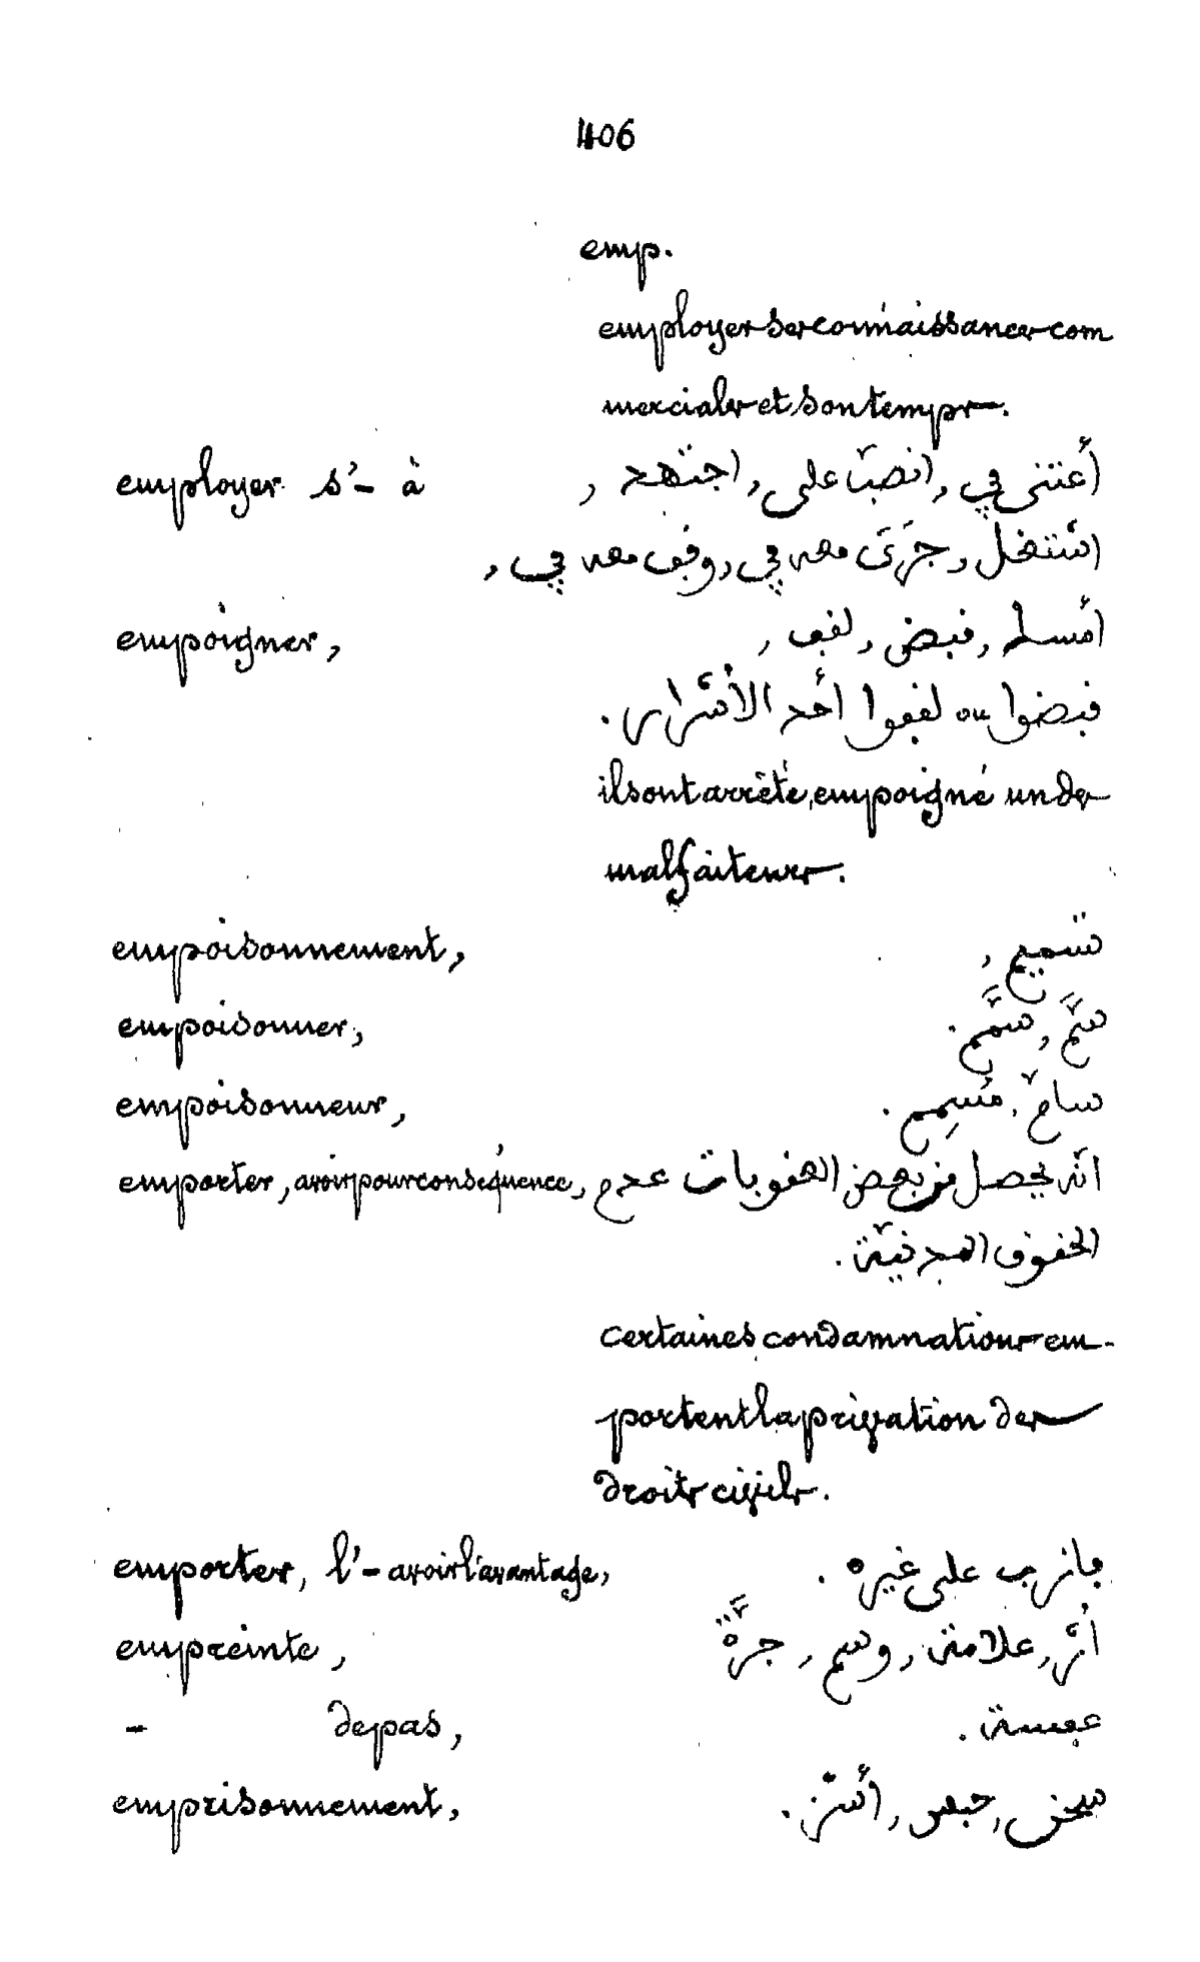 406
emp.
employer ses connaissances com
merciales et son temps.
employer s'- à أعتنى في, انصبّ على, اجتهد,
اشتغل, جرَى معه في, وقف معه في,
empoigner, امسك, قبض, لقف,
قبضوا ou لقفوا أحد الأشرار.
ils ont arrêté, empoigné un des
malfaiteurs.
empoisonnement, تسميم,
empoisonner, سمَّ, سمَّم.
empoisonneur, سامّ, مُسمِم.
emporter, avoir pour conséquence, انّه يحصل من بعض العقوبات عدم
الحقوق المدنيّة.
certaines condamnations em-
portent la privation des
droits civils.
emporter, l'- avoir l'avantage, على غيره.
empreinte, أثر, علامة, وسم, جرَّة
- de pas, عفسة.
emprisonnement, سجن, حبس, أسر.